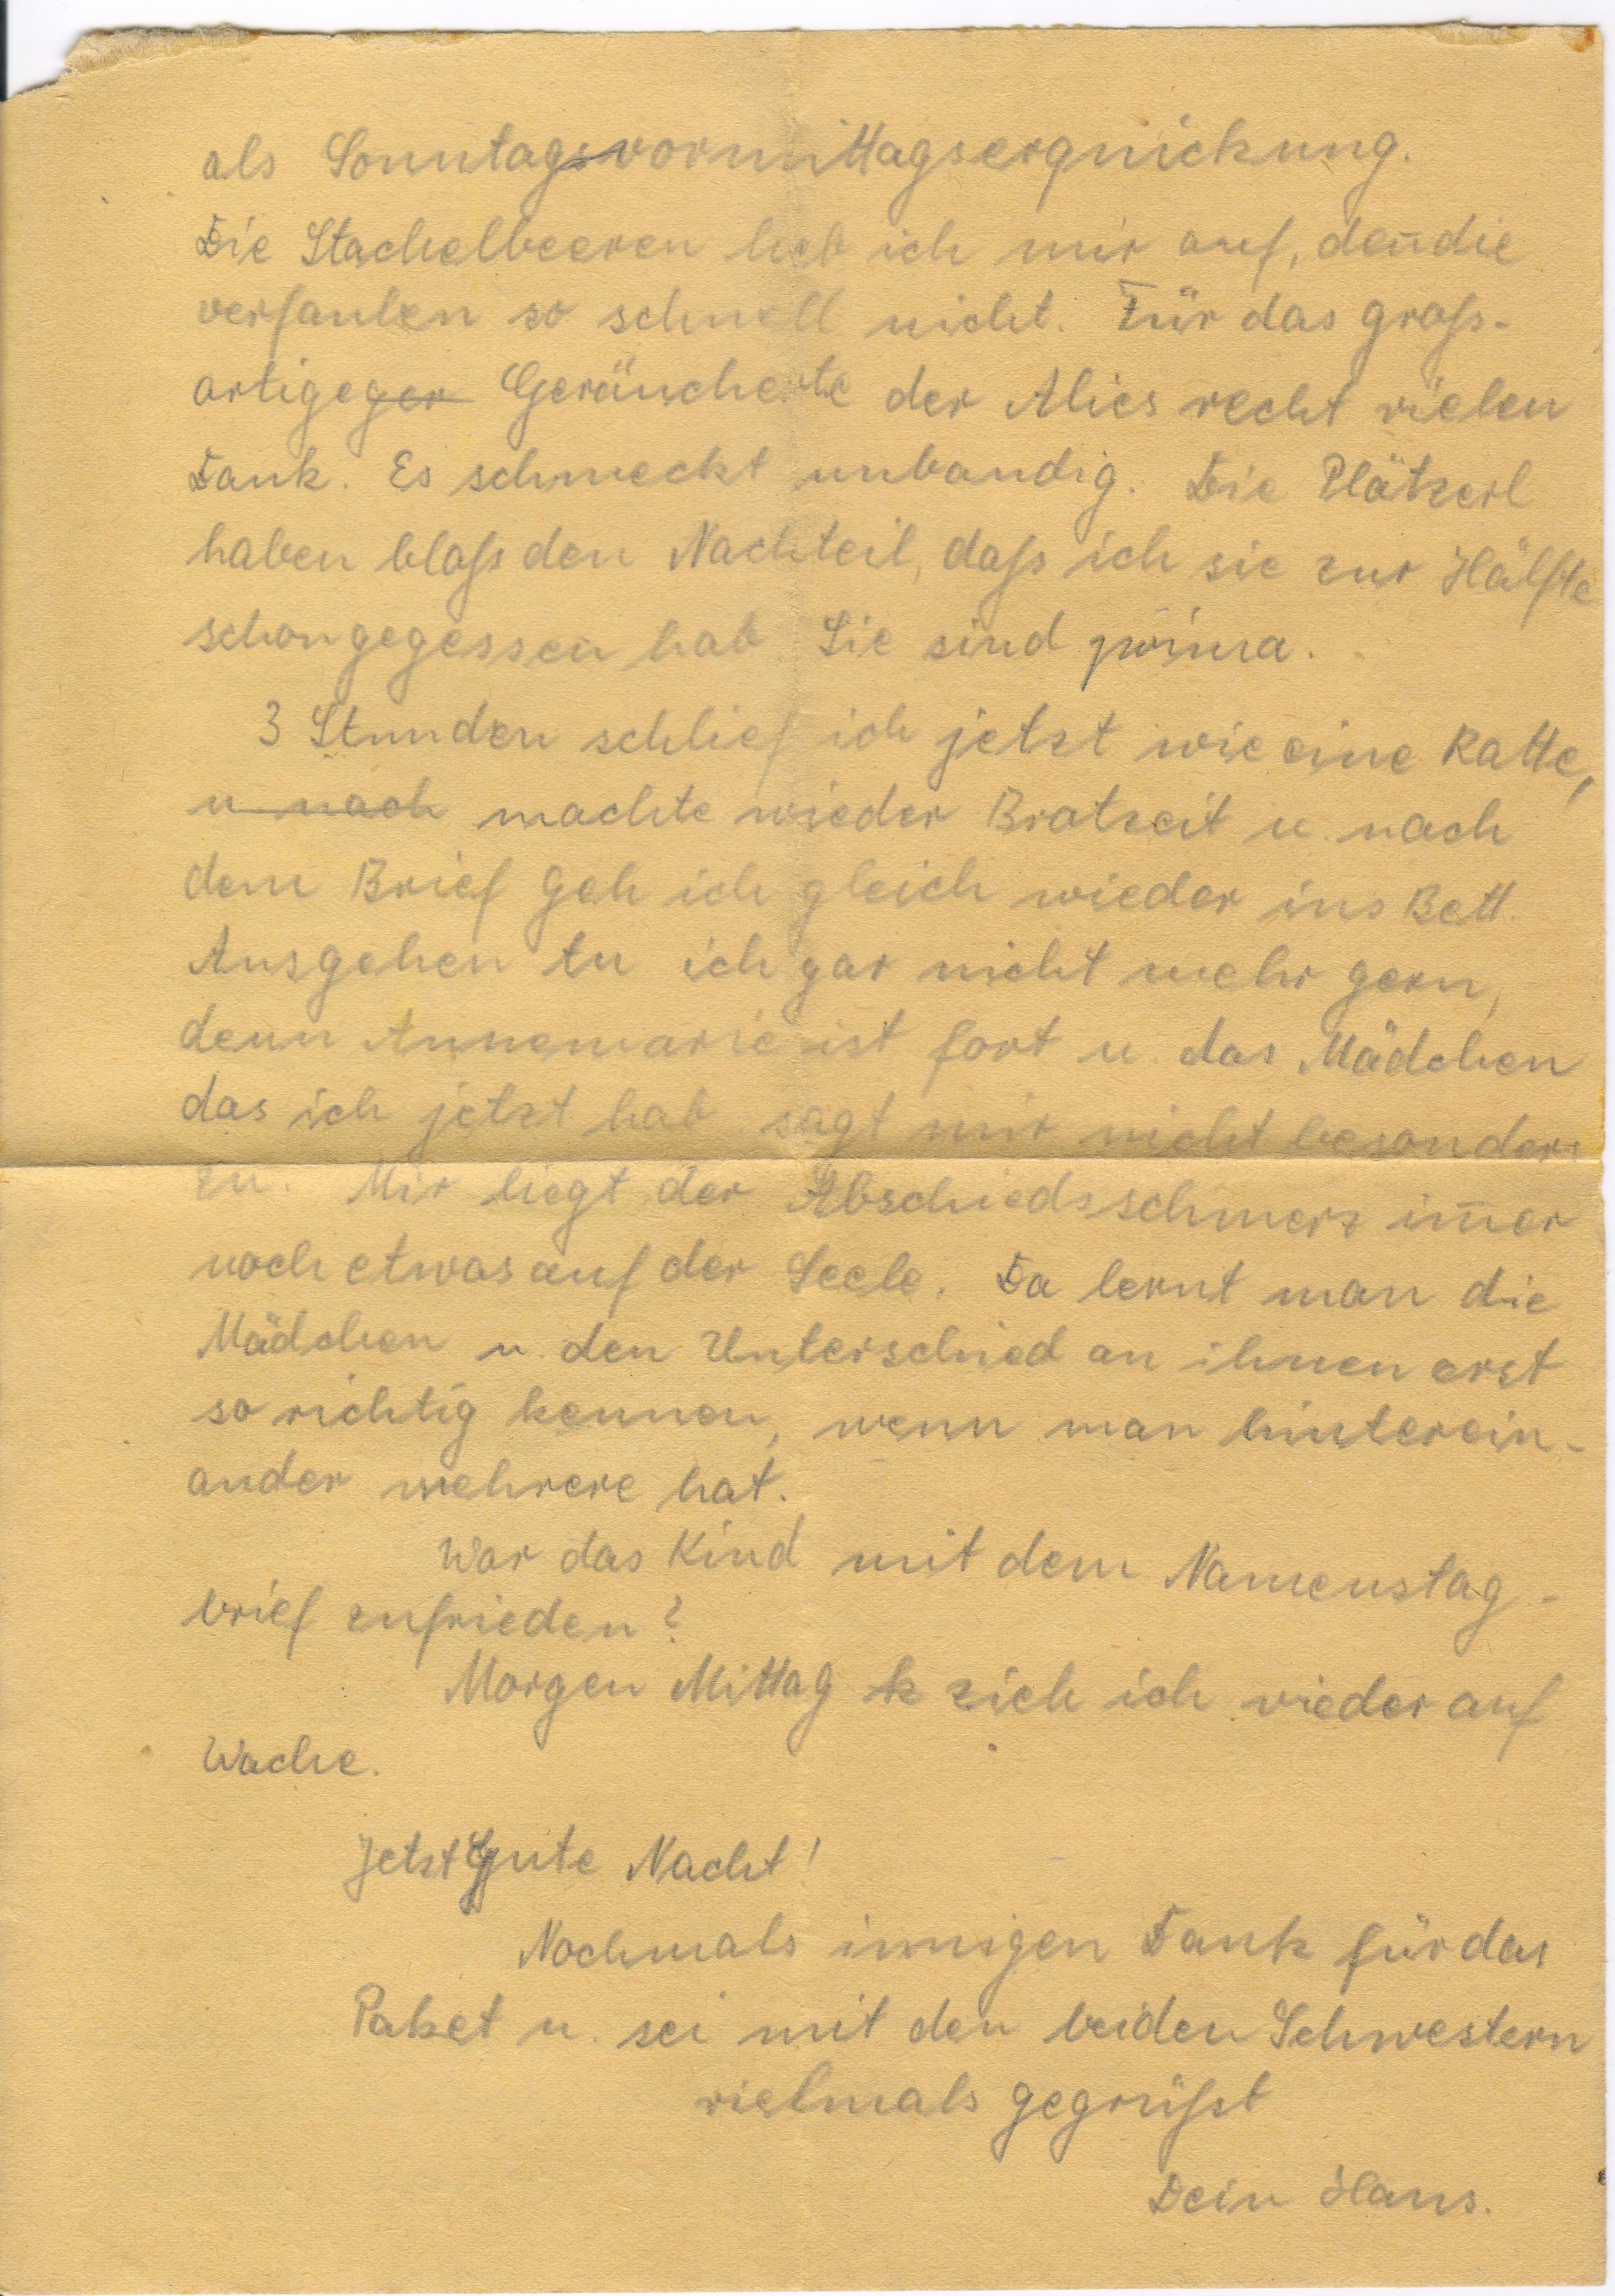 als Sonntagsvormittagserquickung.
Die Stachelbeeren heb ich mir auf, den̄ die
verfaulen so schnell nicht. Für das groß-
artige ger Geräucherte der Alies recht vielen
Dank. Es schmeckt unbandig. Die Plätzerl
haben bloß den Nachteil, daß ich sie zur Hälfte
schon gegessen hab Sie sind prima.
3 Stunden schlief ich jetzt wie eine Ratte,
u nach machte wieder Brotzeit u. nach
dem Brief geh ich gleich wieder ins Bett.
Ausgehen tu ich gar nicht mehr gern,
denn Annemarie ist fort u. das Mädchen
das ich jetzt hab sagt mir nicht besonders
zu. Mir liegt der Abschiedsschmerz im̄er
noch etwas auf der Seele. Da lernt man die
Mädchen u. den Unterschied an ihnen erst
so richtig kennen, wenn man hinterein-
ander mehrere hat.
War das Kind mit dem Namenstag-
brief zufrieden?
Morgen Mittag k zieh ich wieder auf
Wache.
Jetzt Gute Nacht!
Nochmals innigen Dank für das
Paket u. sei mit den beiden Schwestern
vielmals gegrüßt
Dein Hans.